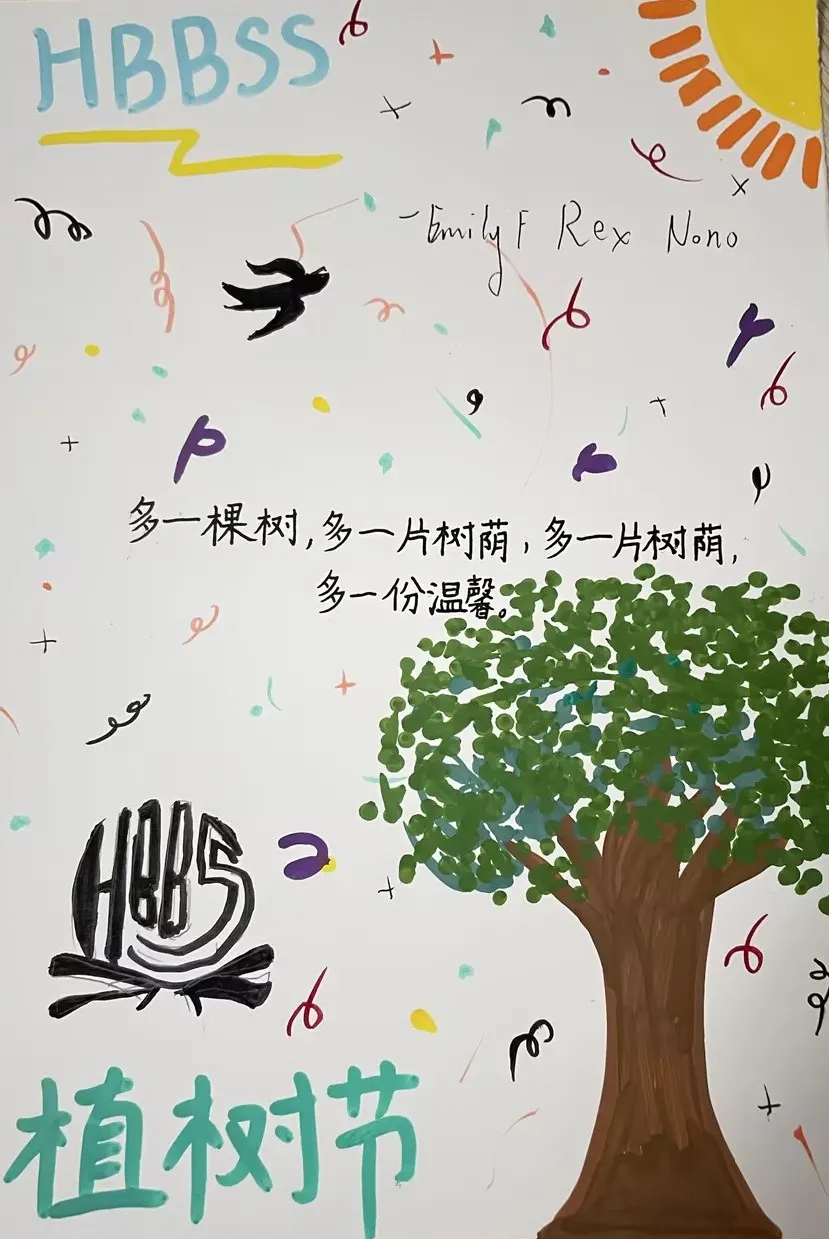 HBBSS
-Emily F Rex Nono
多一棵树,多一片树荫,多一片树荫,
多一份温馨。
HBBS
植树节